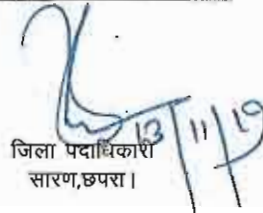 13/11/19
जिला पदाधिकारी
सारण,छपरा।